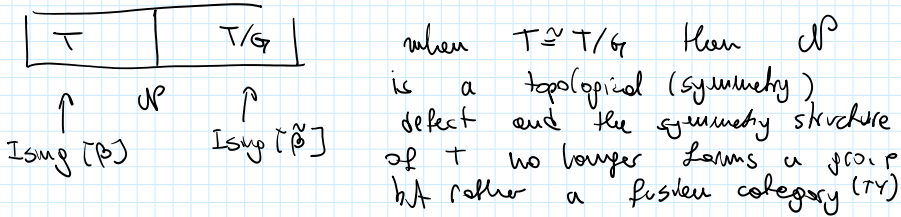 T T/G
when T ≅ T/G then 𝒩
is a topological (symmetry)
𝒩
defect and the symmetry structure
Ising [β] Ising [β̃]
of T no longer forms a group
but rather a fusion category (TY)